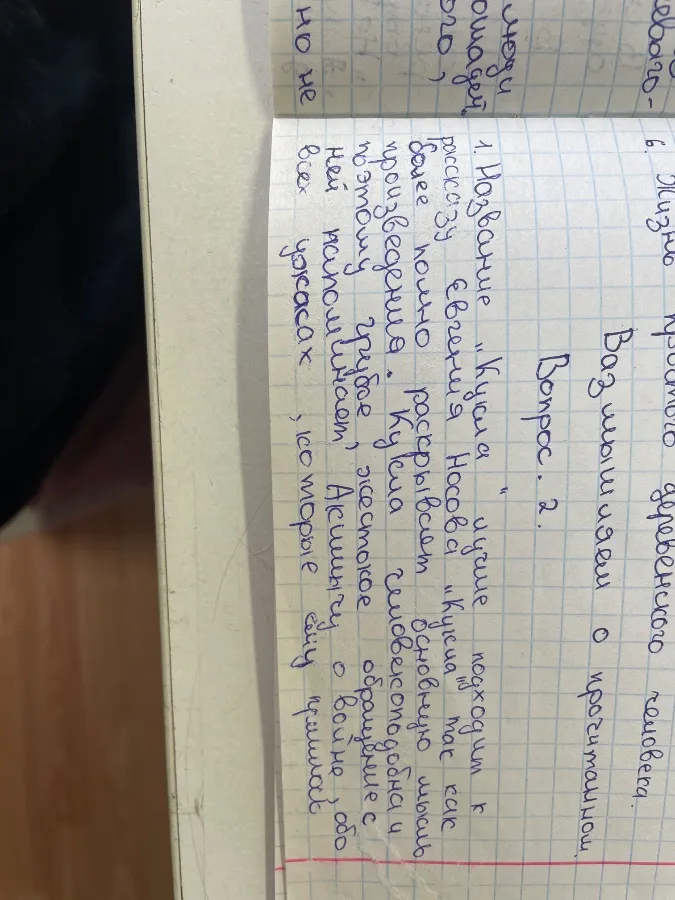 люди
лошадей,
ого,
но не
6. Жизнь простого деревенского человека.
Вазмышляем о прочитанном.
Вопрос. 2.
1. Название „Кукла" лучше подходит к
рассказу Евгения Носова „Кукла" так как
более полно раскрывает основную мысль
произведения. Кукла человекоподобна и
поэтому грубое, жестокое обращение с
ней напоминает Акимычу о войне, обо
всех ужасах, которые ему пришлось